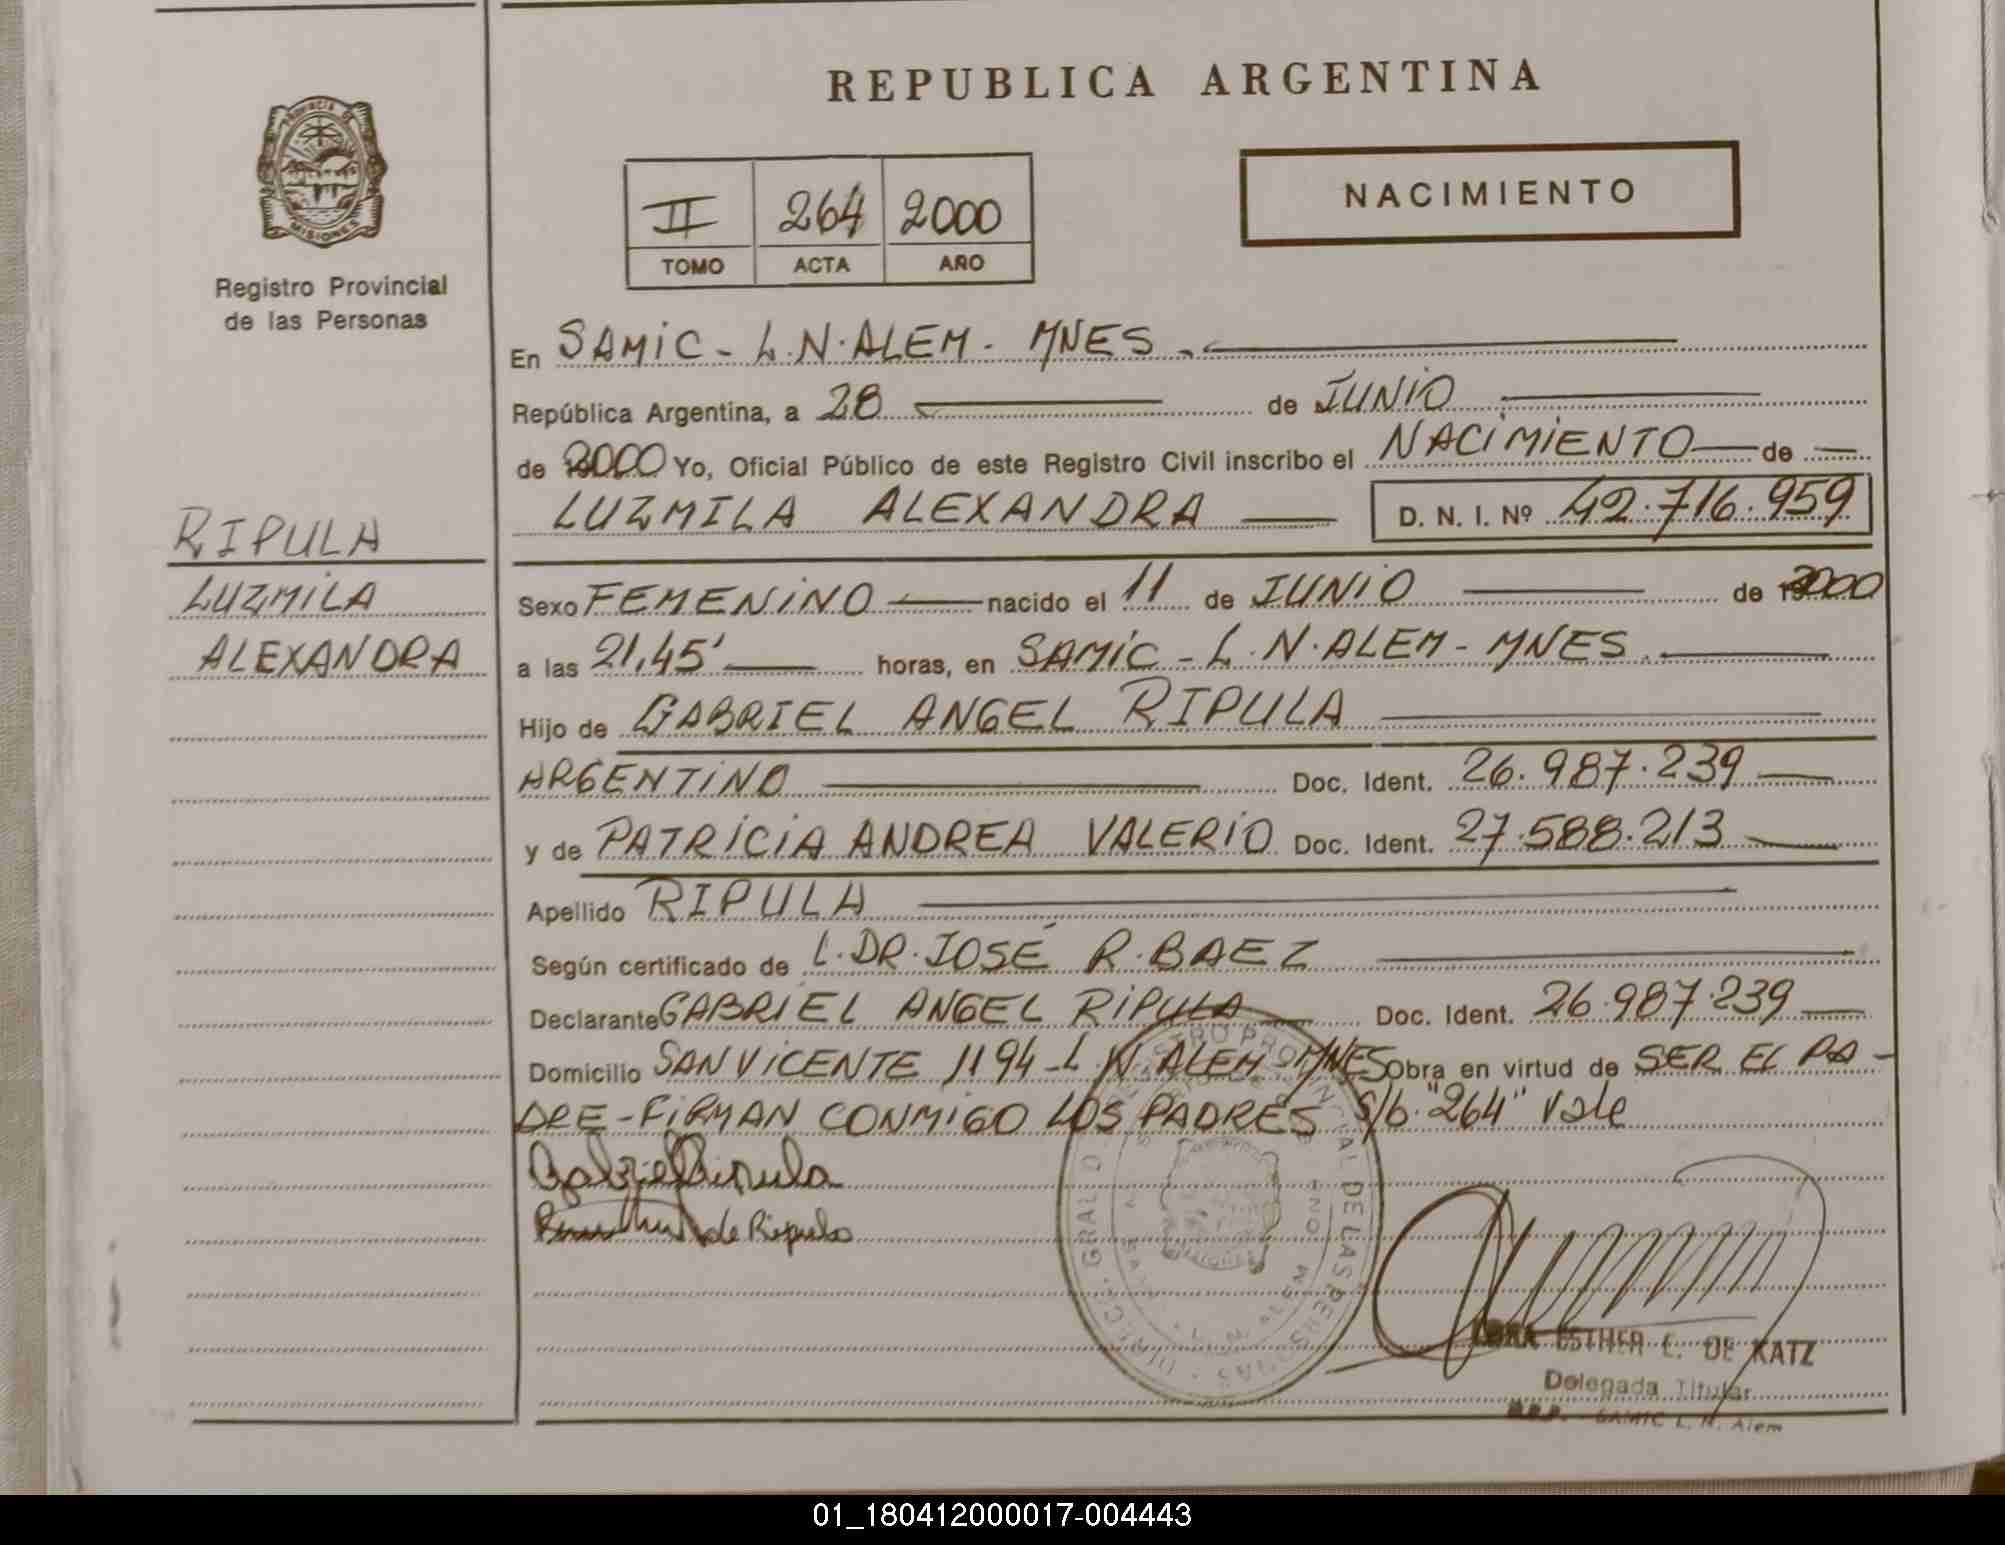 REPUBLICA ARGENTINA
PROVINCIA DE
MISIONES
Registro Provincial
de las Personas
II 264 2000
TOMO ACTA AÑO
NACIMIENTO
En SAMIC - L.N. ALEM - MNES.
República Argentina, a 28 de JUNIO
de 2000 Yo, Oficial Público de este Registro Civil inscribo el NACIMIENTO de
LUZMILA ALEXANDRA D. N. I. Nº 42.716.959
RIPULA
LUZMILA
ALEXANDRA
Sexo FEMENINO nacido el 11 de JUNIO de 2000
a las 21,45' horas, en SAMIC - L.N. ALEM - MNES.
Hijo de GABRIEL ANGEL RIPULA
ARGENTINO Doc. Ident. 26.987.239
y de PATRICIA ANDREA VALERIO Doc. Ident. 27.588.213
Apellido RIPULA
Según certificado de L. DR. JOSÉ R. BAEZ
Declarante GABRIEL ANGEL RIPULA Doc. Ident. 26.987.239
Domicilio SAN VICENTE 1194 - L N ALEM MNES Obra en virtud de SER EL PA-
DRE - FIRMAN CONMIGO LOS PADRES S/b. "264" Vale
Gabriel Ripula
de Ripula
ESTHER L. DE KATZ
Delegada Titular
SAMIC L. N. Alem
01_180412000017-004443